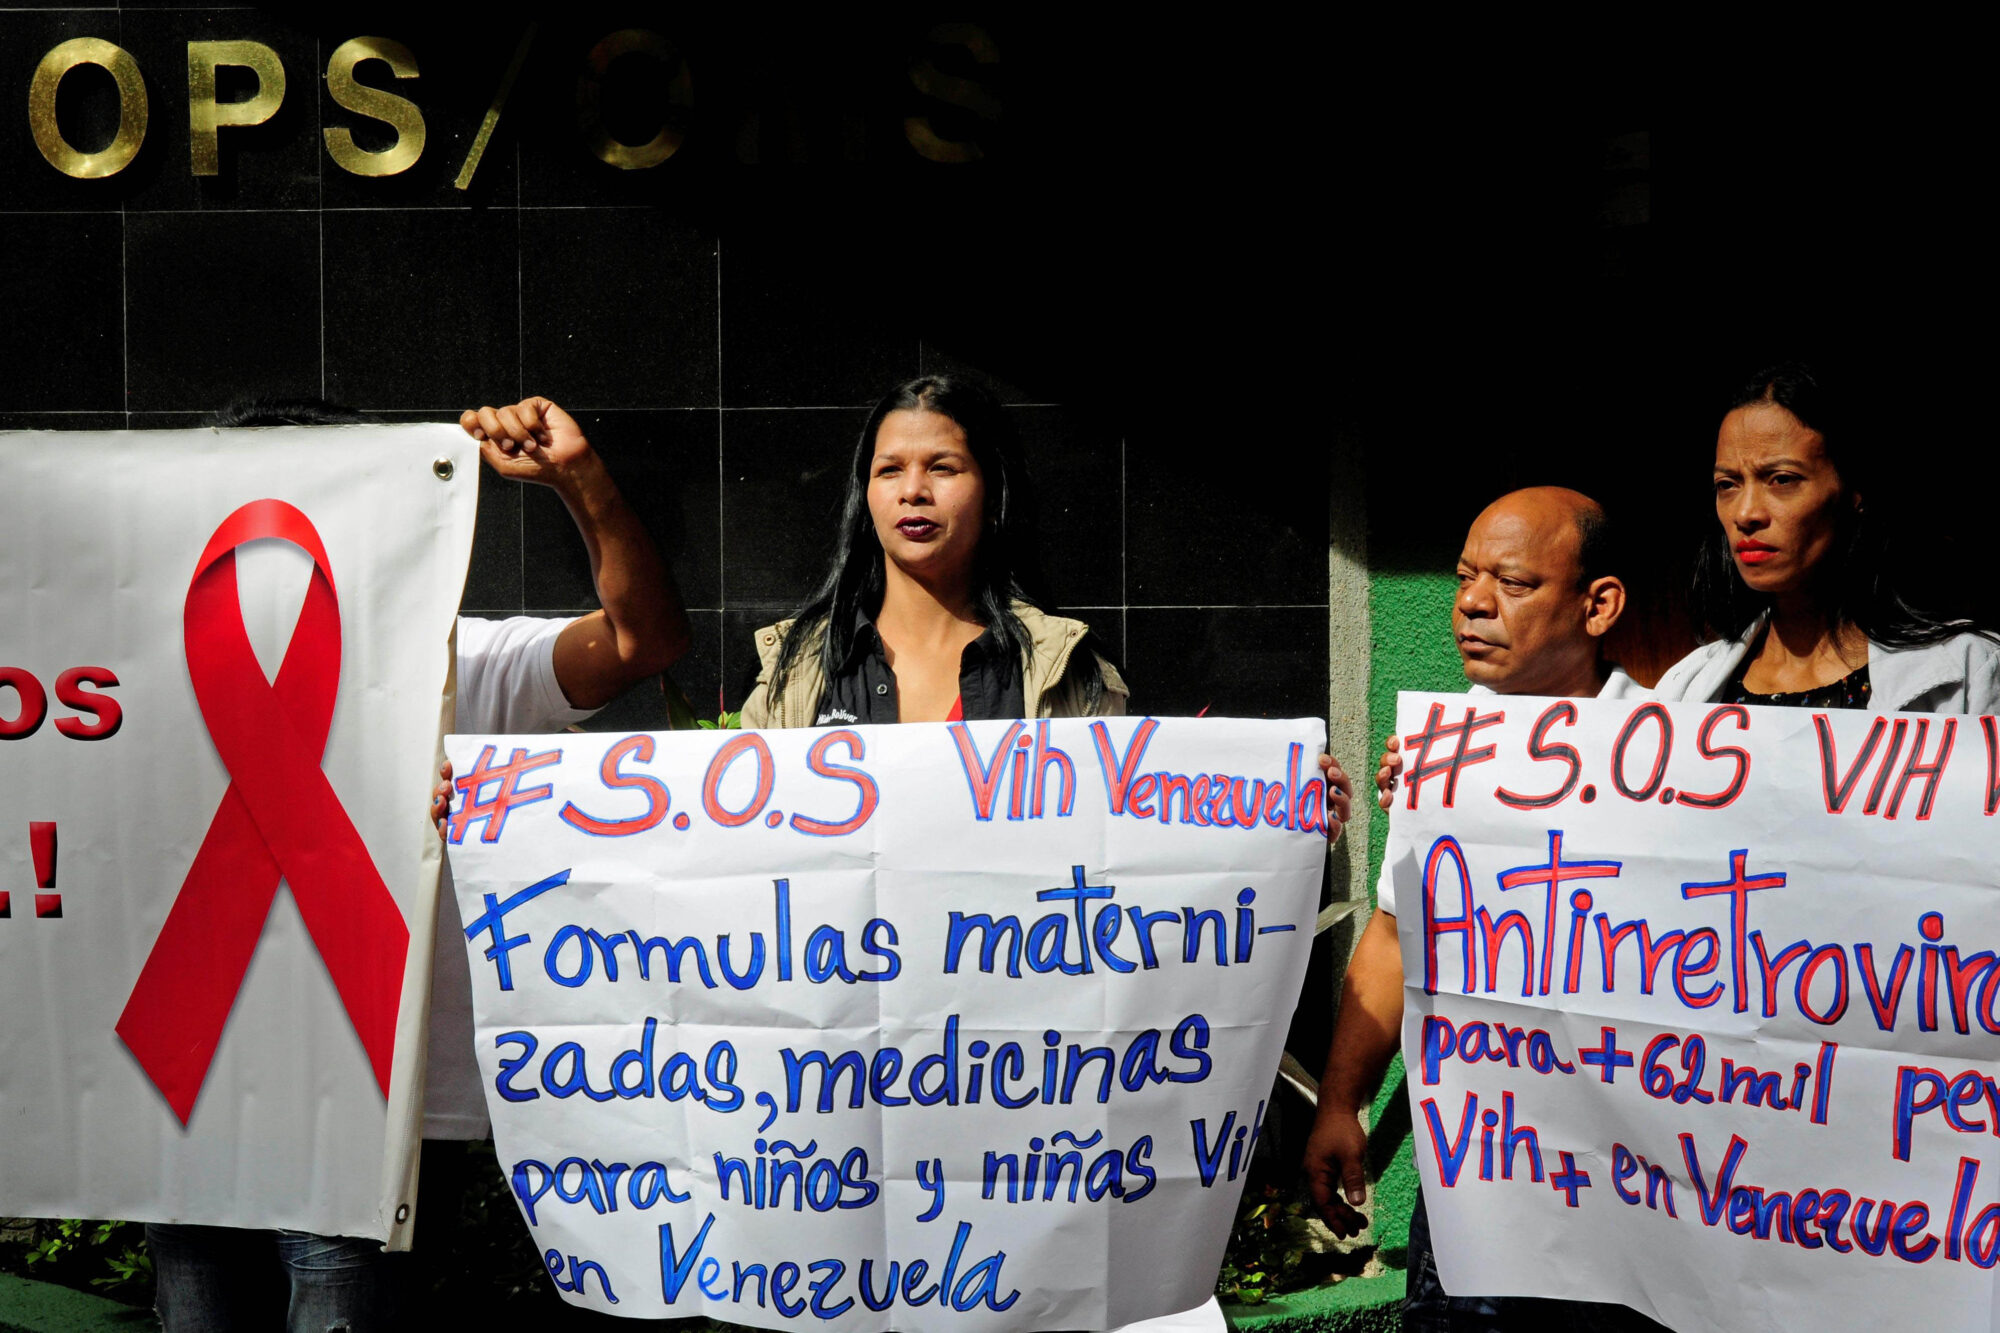 OPS/OMS
os
!
#S.O.S Vih Venezuela
Formulas materni-
zadas, medicinas
para niños y niñas Vih
en Venezuela
#S.O.S VIH V
Antirretrovira
para +62mil per
Vih+ en Venezuela
Bolívar